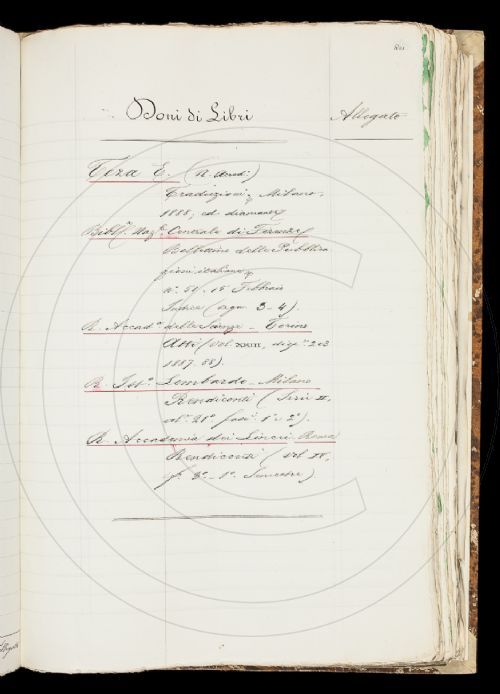 Doni di Libri
Allegato
Teza E. (R. Accad:)
Traduzioni, Milano,
1888, ed. diamante
Bibl. Naz. Centrale di Firenze
Bollettino delle Pubblica
zioni italiane
n.° 51. 15 Febbraio
Indice (pagn. 3-4).
R. Accad. delle Scienze - Torino
Atti (Vol. XXIII, disp. 2 e 3
1887-88).
R. Ist.° Lombardo - Milano
Rendiconti (Serie II,
vol. 21° fasc. 1° e 2°).
R. Accademia dei Lincei Roma
Rendiconti (Vol IV,
f. 2° - 1° Semestre).